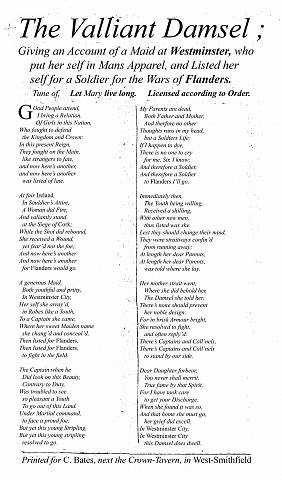 The Valliant Damsel ;
Giving an Account of a Maid at Westminster, who
put her self in Mans Apparel, and Listed her
self for a Soldier for the Wars of Flanders.
Tune of, Let Mary live long. Licensed according to Order.
GOod People attend,
I bring a Relation,
Of Girls in this Nation,
Who fought to defend
the Kingdom and Crown:
In this present Reign,
They fought on the Main,
like strangers to fate,
and now here's another
and now here's another
was listed of late.
At fair Ireland,
In Souldier's Attire,
A Woman did Fire,
And valiantly stand
at the Siege of Cork;
While the Shot did rebound,
She received a Wound,
yet fear'd not the foe:
And now here's another
And now here's another
for Flanders would go.
A generous Maid,
Both youthful and pritty,
In Westminster City,
Her self she array'd,
in Robes like a Youth,
To a Captain she came,
Where her sweet Maiden name
she chang'd and conceal'd,
Then listed for Flanders,
Then listed for Flanders,
to fight in the field.
The Captain when he
Did look on this Beauty,
Contrary to Duty,
Was troubled to see
so pleasant a Youth
To go out of this Land
Under Martial command,
to face a proud foe;
But yet this young Stripling,
But yet this young stripling
resolved to go.
My Parents are dead,
Both Father and Mother,
And therfore no other
Thoughts runs in my head,
but a Soldiers Life:
If I happen to dye,
There is no one to cry
for me, Sir, I know;
And therefore a Soldier,
And therefore a Soldier
to Flanders I'll go.
Immediately then,
The Youth being willing,
Received a shilling,
With other new men,
thus listed was she.
Lest they should change their mind,
They were straitways confin'd
from running away;
At length her dear Parents,
At length her dear Parents,
was told where she lay.
Her mother strait went,
Where she did behold her,
The Damsel she told her,
There's none should prevent
her noble design:
For in brisk Armour bright,
She resolved to fight,
and often reply'd:
There's Captains and Coll'nels
There's Captains and Coll'nels
to stand by our side.
Dear Daughter forbear,
You never shall merrit,
True fame by that Spirit,
For I have took care
to get your Discharge.
When she found it was so,
And that home she must go,
her grief did excell:
In Westminster City,
In Westminster City
this Damsel does dwell.
Printed for C. Bates, next the Crown-Tavern, in West-Smithfield